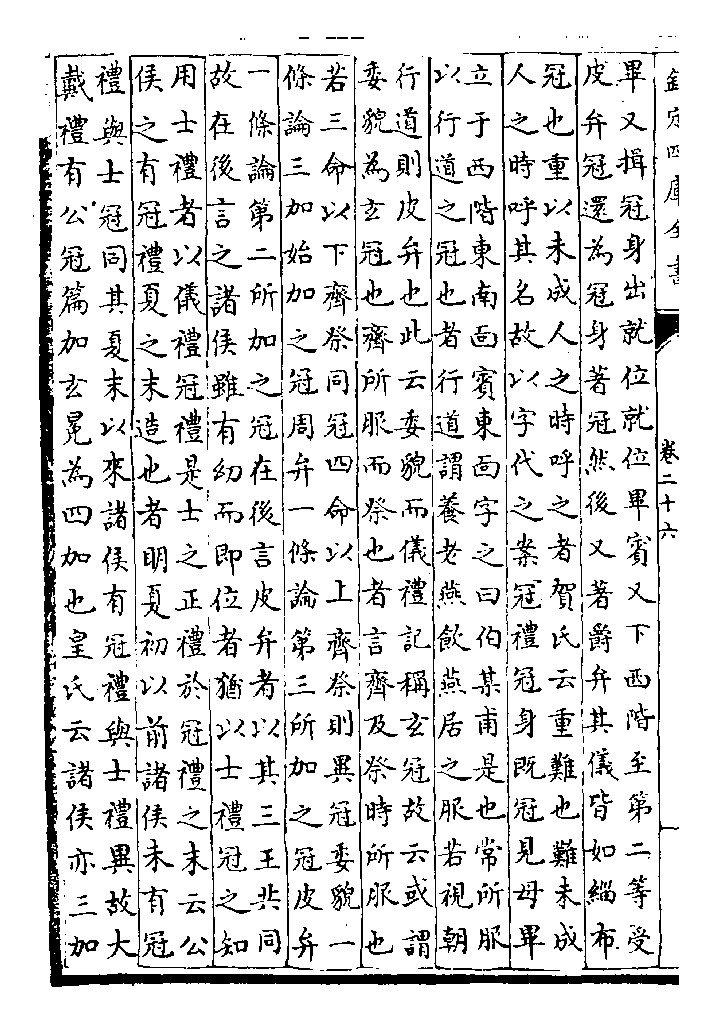 欽定四庫全書
卷二十六
一
畢又揖冠身出就位就位畢賓又下西階至第二等受
皮弁冠還為冠身著冠然後又著爵弁其儀皆如緇布
冠也重以未成人之時呼之者賀氏云重難也難未成
人之時呼其名故以字代之案冠禮冠身既冠見母畢
立于西階東南靣賓東靣字之曰伯某甫是也常所服
以行道之冠也者行道謂養老燕飲燕居之服若視朝
行道則皮弁也此云委貌而儀禮記稱玄冠故云或謂
委貌為玄冠也齊所服而祭也者言齊及祭時所服也
若三命以下齊祭同冠四命以上齊祭則異冠委貌一
條論三加始加之冠周弁一條論第三所加之冠皮弁
一條論第二所加之冠在後言皮弁者以其三王共同
故在後言之諸侯雖有幼而即位者猶以士禮冠之知
用士禮者以儀禮冠禮是士之正禮於冠禮之末云公
侯之有冠禮夏之末造也者明夏初以前諸侯未有冠
禮與士冠同其夏末以來諸侯有冠禮與士禮異故大
戴禮有公冠篇加玄冕為四加也皇氏云諸侯亦三加